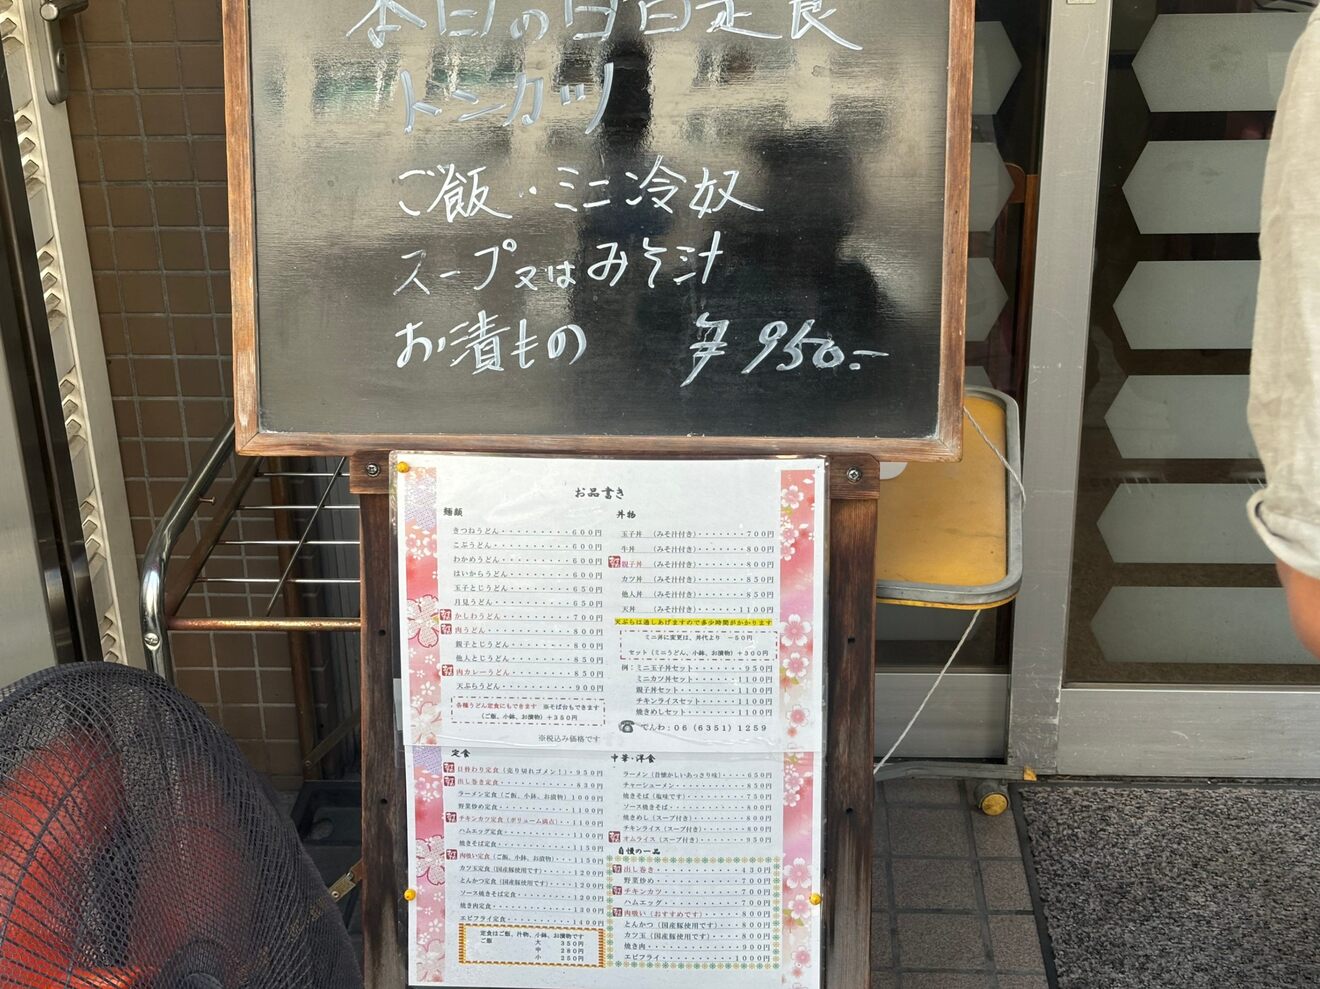 本日の日替定食
トンカツ
ご飯・ミニ冷奴
スープ又はみそ汁
お漬もの ¥950.-
お品書き
麺類
きつねうどん・・・・・・・・・600円
こぶうどん・・・・・・・・・600円
わかめうどん・・・・・・・・600円
はいからうどん・・・・・・・600円
玉子とじうどん・・・・・・・650円
月見うどん・・・・・・・・・650円
かしわうどん・・・・・・・・700円
肉うどん・・・・・・・・・・800円
親子とじうどん・・・・・・・800円
他人とじうどん・・・・・・・850円
肉カレーうどん・・・・・・・850円
天ぷらうどん・・・・・・・・900円
各種うどん定食にもできます ※そば台もできます
(ご飯、小鉢、お漬物)+350円
※税込み価格です
丼物
玉子丼 (みそ汁付き)・・・・・・・700円
牛丼 (みそ汁付き)・・・・・・・800円
親子丼 (みそ汁付き)・・・・・・・800円
カツ丼 (みそ汁付き)・・・・・・・850円
他人丼 (みそ汁付き)・・・・・・・850円
天丼 (みそ汁付き)・・・・・・・1100円
天ぷらは通しあげますので多少時間がかかります
ミニ丼に変更は、丼代より -50円
セット(ミニうどん、小鉢、お漬物)+300円
例:ミニ玉子丼セット・・・・・・950円
ミニカツ丼セット・・・・・1100円
親子丼セット・・・・・・・1100円
チキンライスセット・・・・1100円
焼きめしセット・・・・・・1100円
でんわ:06(6351)1259
定食
日替わり定食(売り切れゴメン!)・950円
出し巻き定食・・・・・・・・・・830円
ラーメン定食(ご飯、小鉢、お漬物)1000円
野菜炒め定食・・・・・・・・・・1100円
チキンカツ定食(ボリューム満点)・1100円
ハムエッグ定食・・・・・・・・・1100円
焼きそば定食・・・・・・・・・・1150円
肉吸い定食(ご飯、小鉢、お漬物)・1150円
カツ玉定食(国産豚使用です)・・・1200円
とんかつ定食(国産豚使用です)・・1200円
ソース焼きそば定食・・・・・・・1200円
焼き肉定食・・・・・・・・・・・1300円
エビフライ定食・・・・・・・・・1400円
定食はご飯、汁物、小鉢、お漬物です
ご飯 大 350円
中 280円
小 250円
中華・洋食
ラーメン(昔懐かしいあっさり味)・・・・650円
チャーシューメン・・・・・・・・850円
焼きそば(塩味です)・・・・・・・750円
ソース焼きそば・・・・・・・・・800円
焼きめし(スープ付き)・・・・・・800円
チキンライス(スープ付き)・・・・800円
オムライス(スープ付き)・・・・・950円
自慢の一品
出し巻き・・・・・・・・・・・430円
野菜炒め・・・・・・・・・・・700円
チキンカツ・・・・・・・・・・700円
ハムエッグ・・・・・・・・・・700円
肉吸い(おすすめです)・・・・・800円
とんかつ(国産豚使用です)・・・800円
カツ玉(国産豚使用です)・・・・800円
焼き肉・・・・・・・・・・・・900円
エビフライ・・・・・・・・・・1000円